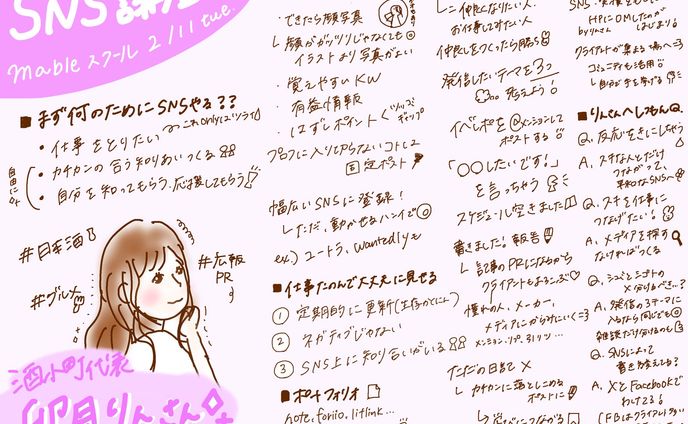 SNS講座
mableスクール 2/11 tue.
■まず何のためにSNSやる??
・仕事をとりたい
これonlyはツライ
・カチカンの合う知りあいつくる
・自分を知ってもらう、応援してもらう
#日本酒
#グルメ
#広報
PR
酒小町代表
卯月りんさん
・できたら顔写真
└ 顔がガッツリじゃなくても
イラストより写真がよい
・覚えやすいKW
・有益情報
・はずしポイント
プロフに入りきらないコトは
固定ポスト
幅広いSNSに登録!
└ ただ、動かせるハンイで
ex.) ユートラ、Wantedlyも
■仕事たのんで大丈夫に見せる
① 定期的に更新(生存かくにん)
② ネガティブじゃない
③ SNS上に知り合いがいる
■ポートフォリオ
note、foriio、litlink...
仲良くなりたい人、
お仕事してみたい人
仲良しをつくったら勝ち
発信したいテーマを3つ
考えよう!
イベレポを@メンションして
ポストする
「○○したいです!」
を言っちゃう
スケジュール空きました
書きました!報告
└ 記事のPRになるから
クライアントもよろこぶ
憧れの人、メーカー、
メディアにからみにいく
メンション、リプ、引リツ...
ただの日記 ×
└ カチカンに落としこめる
ポストに
HPにDMしたのが
はじまり
クライアントが集まる場へ
コミュニティも活用
└ 自分が手を挙げる
■りんさんへしつもん
Q. 反応をきにしちゃう
A. スキな人とだけ
つながって、
平和なSNSへ
Q. スキを仕事に
つなげたい!
A. メディアを探す
なければつくる
Q. シュミとシゴトの
×分けるべき...?
A. 発信の3テーマに
入るなら同じでも
雑談だけ分けるのも
Q. SNSによって
書き分けてる?
A. XとFacebookで
わけてる!
(FBはクライアント多い